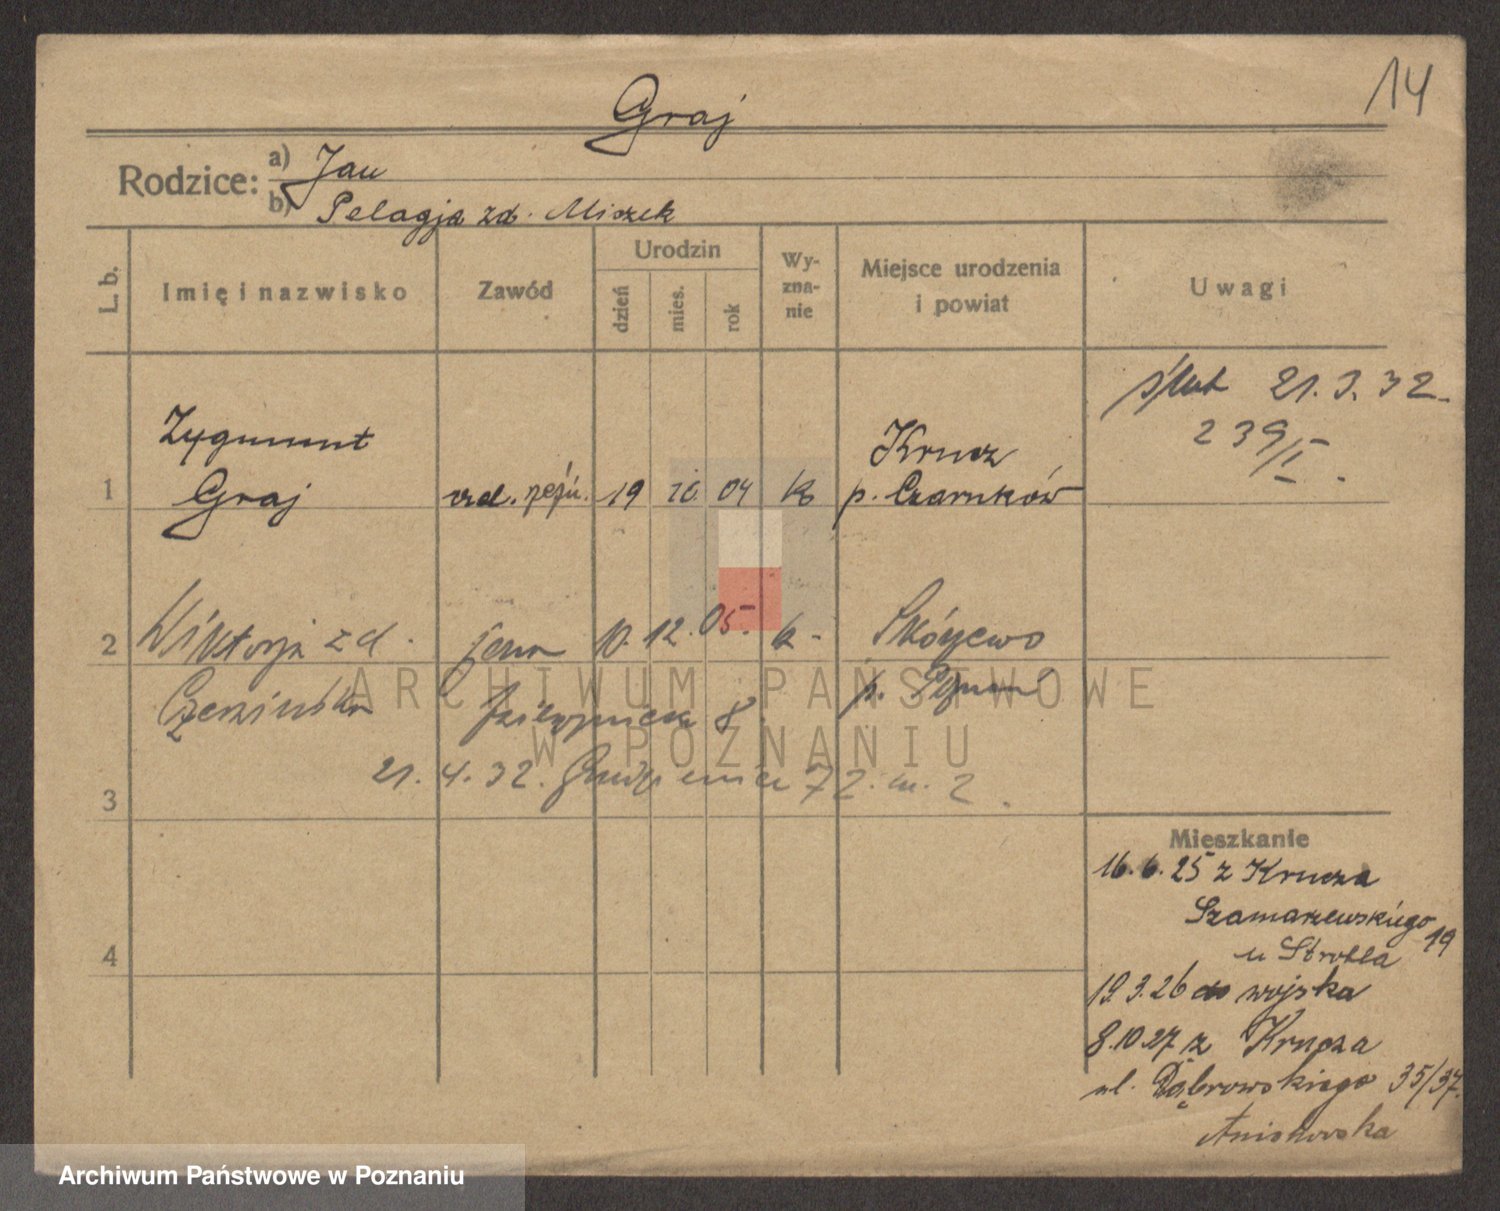 14
Graj
Rodzice: a) Jan
b) Pelagja zd. Miszek
L. b.
Imię i nazwisko
Zawód
Urodzin
dzień
mies.
rok
Wy-
zna-
nie
Miejsce urodzenia
i powiat
Uwagi
ślub 21.3.32.
239/I.
Zygmunt
Krucz
1 Graj 19 10. 04 k p. Czarnków
2 Wiktorja zd. żona 10. 12. 05. k. Skórzewo
p. Poznań
8.
3 21.4.32. 72. m. 2.
4
Mieszkanie
16.6.25 z Krucza
Szamarzewskiego 19
u Strobla
19.3.26 do wojska
8.10.27 z Krucza
ul. Dąbrowskiego 35/37.
ARCHIWUM PAŃSTWOWE
W POZNANIU
Archiwum Państwowe w Poznaniu